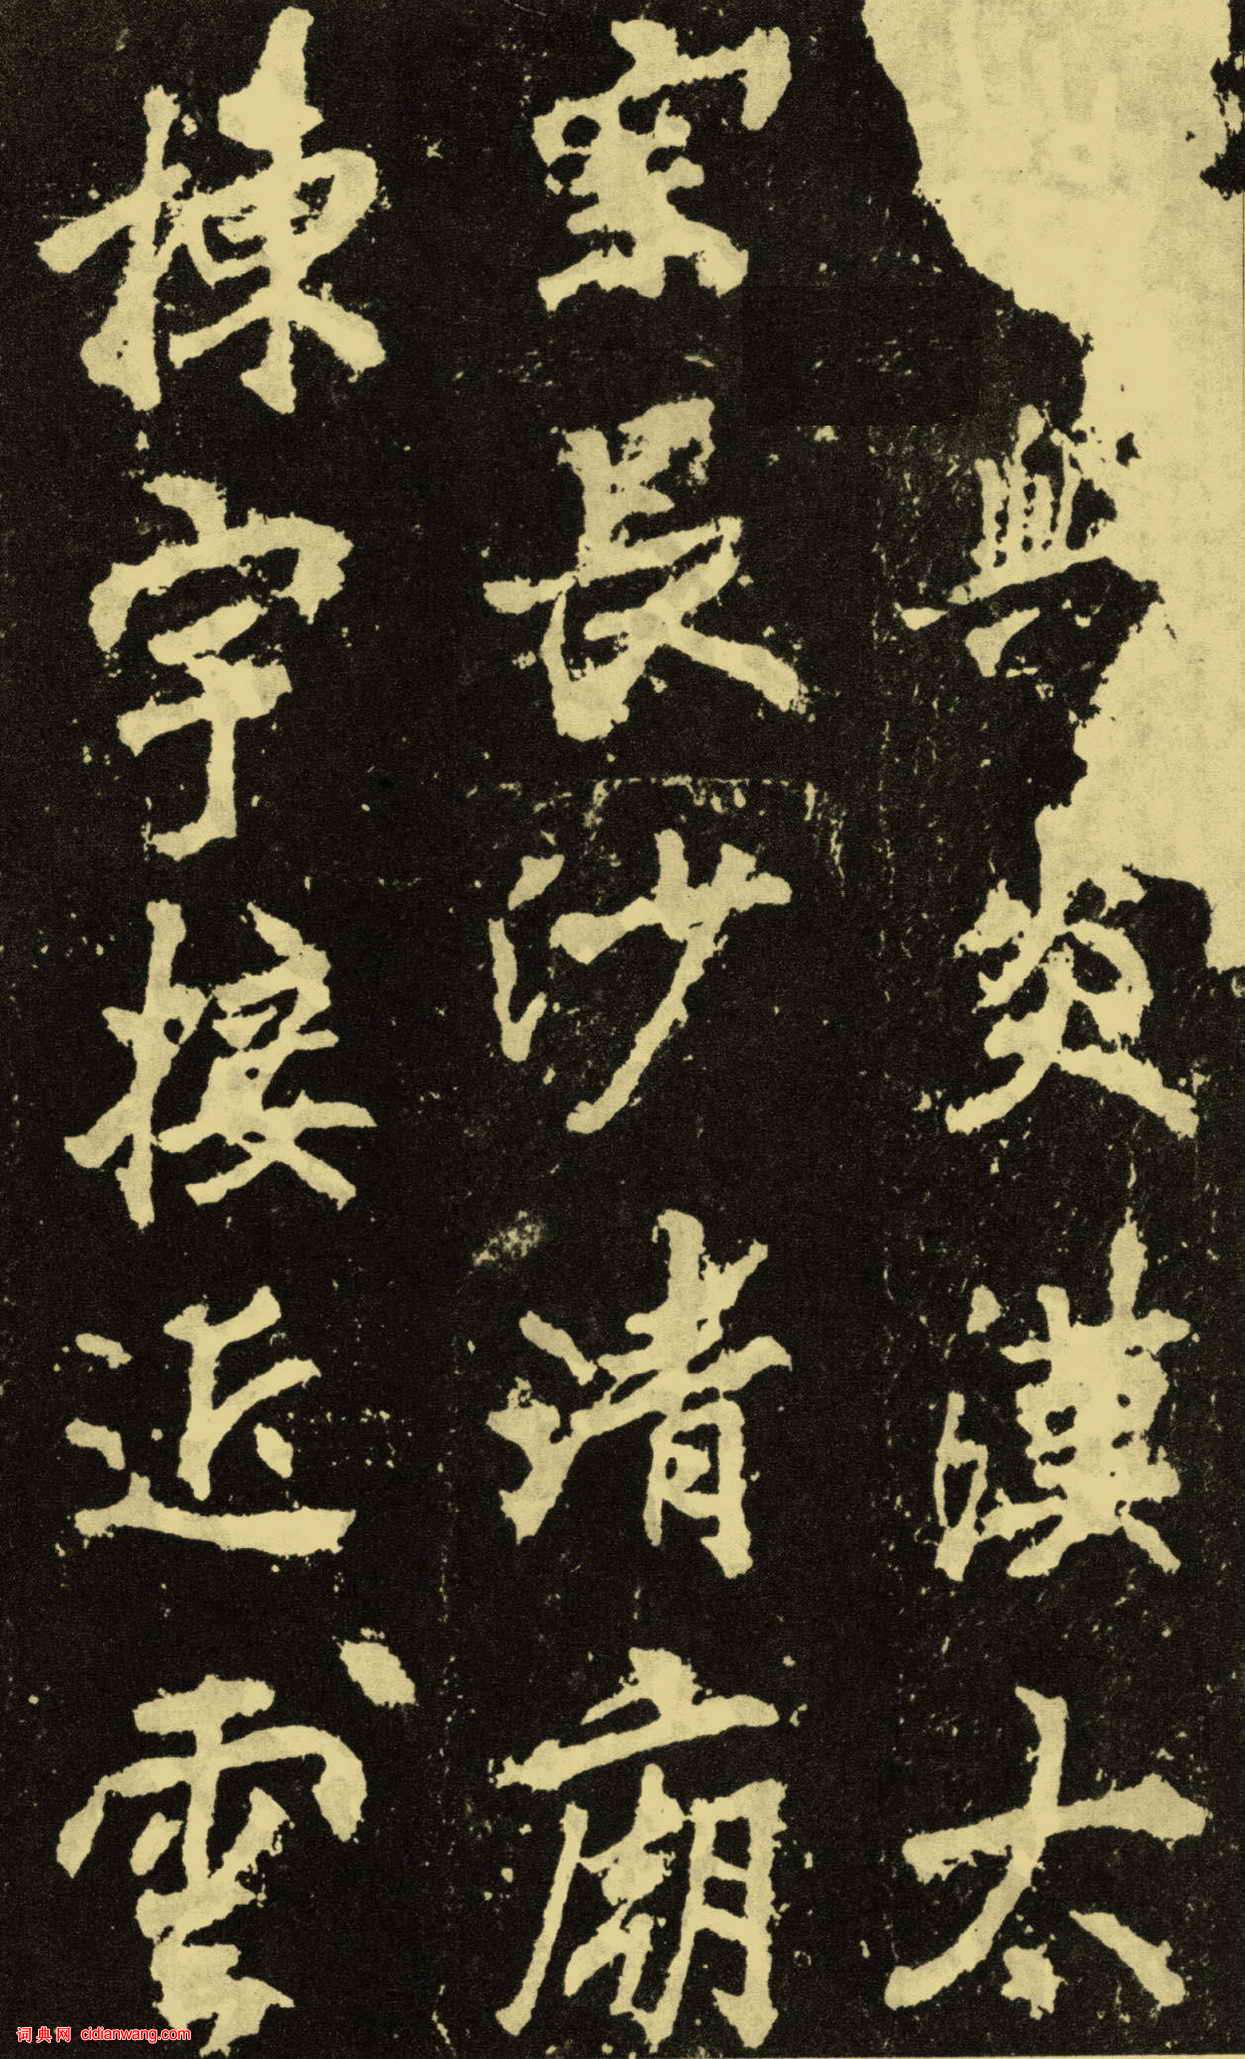 炎漢太
長沙清廟
棟宇接近雲
词典网 cidianwang.com